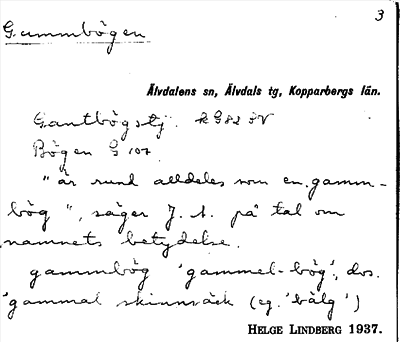 Gummbögen
3
Älvdalens sn, Älvdals tg, Kopparbergs län.
Gantbögstj. kG82 SV
Bögen G 107.
"är rund alldeles som en gamm-
bög", säger J. A. på tal om
namnets betydelse.
gammbög 'gammel-bög', dvs.
'gammal skinnsäck (eg. 'bälg')
HELGE LINDBERG 1937.